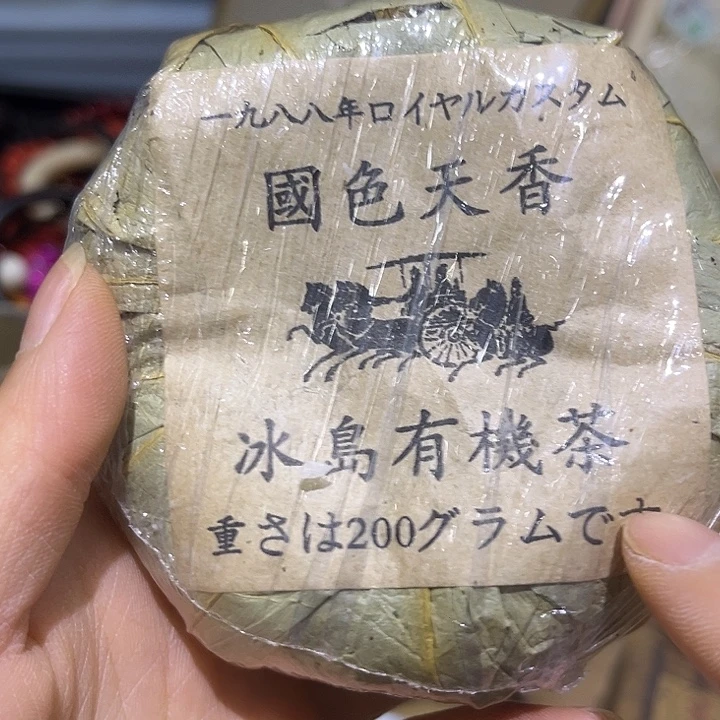 一九八八年ロイヤルカスタム
國色天香
冰島有機茶
重さは200グラムです